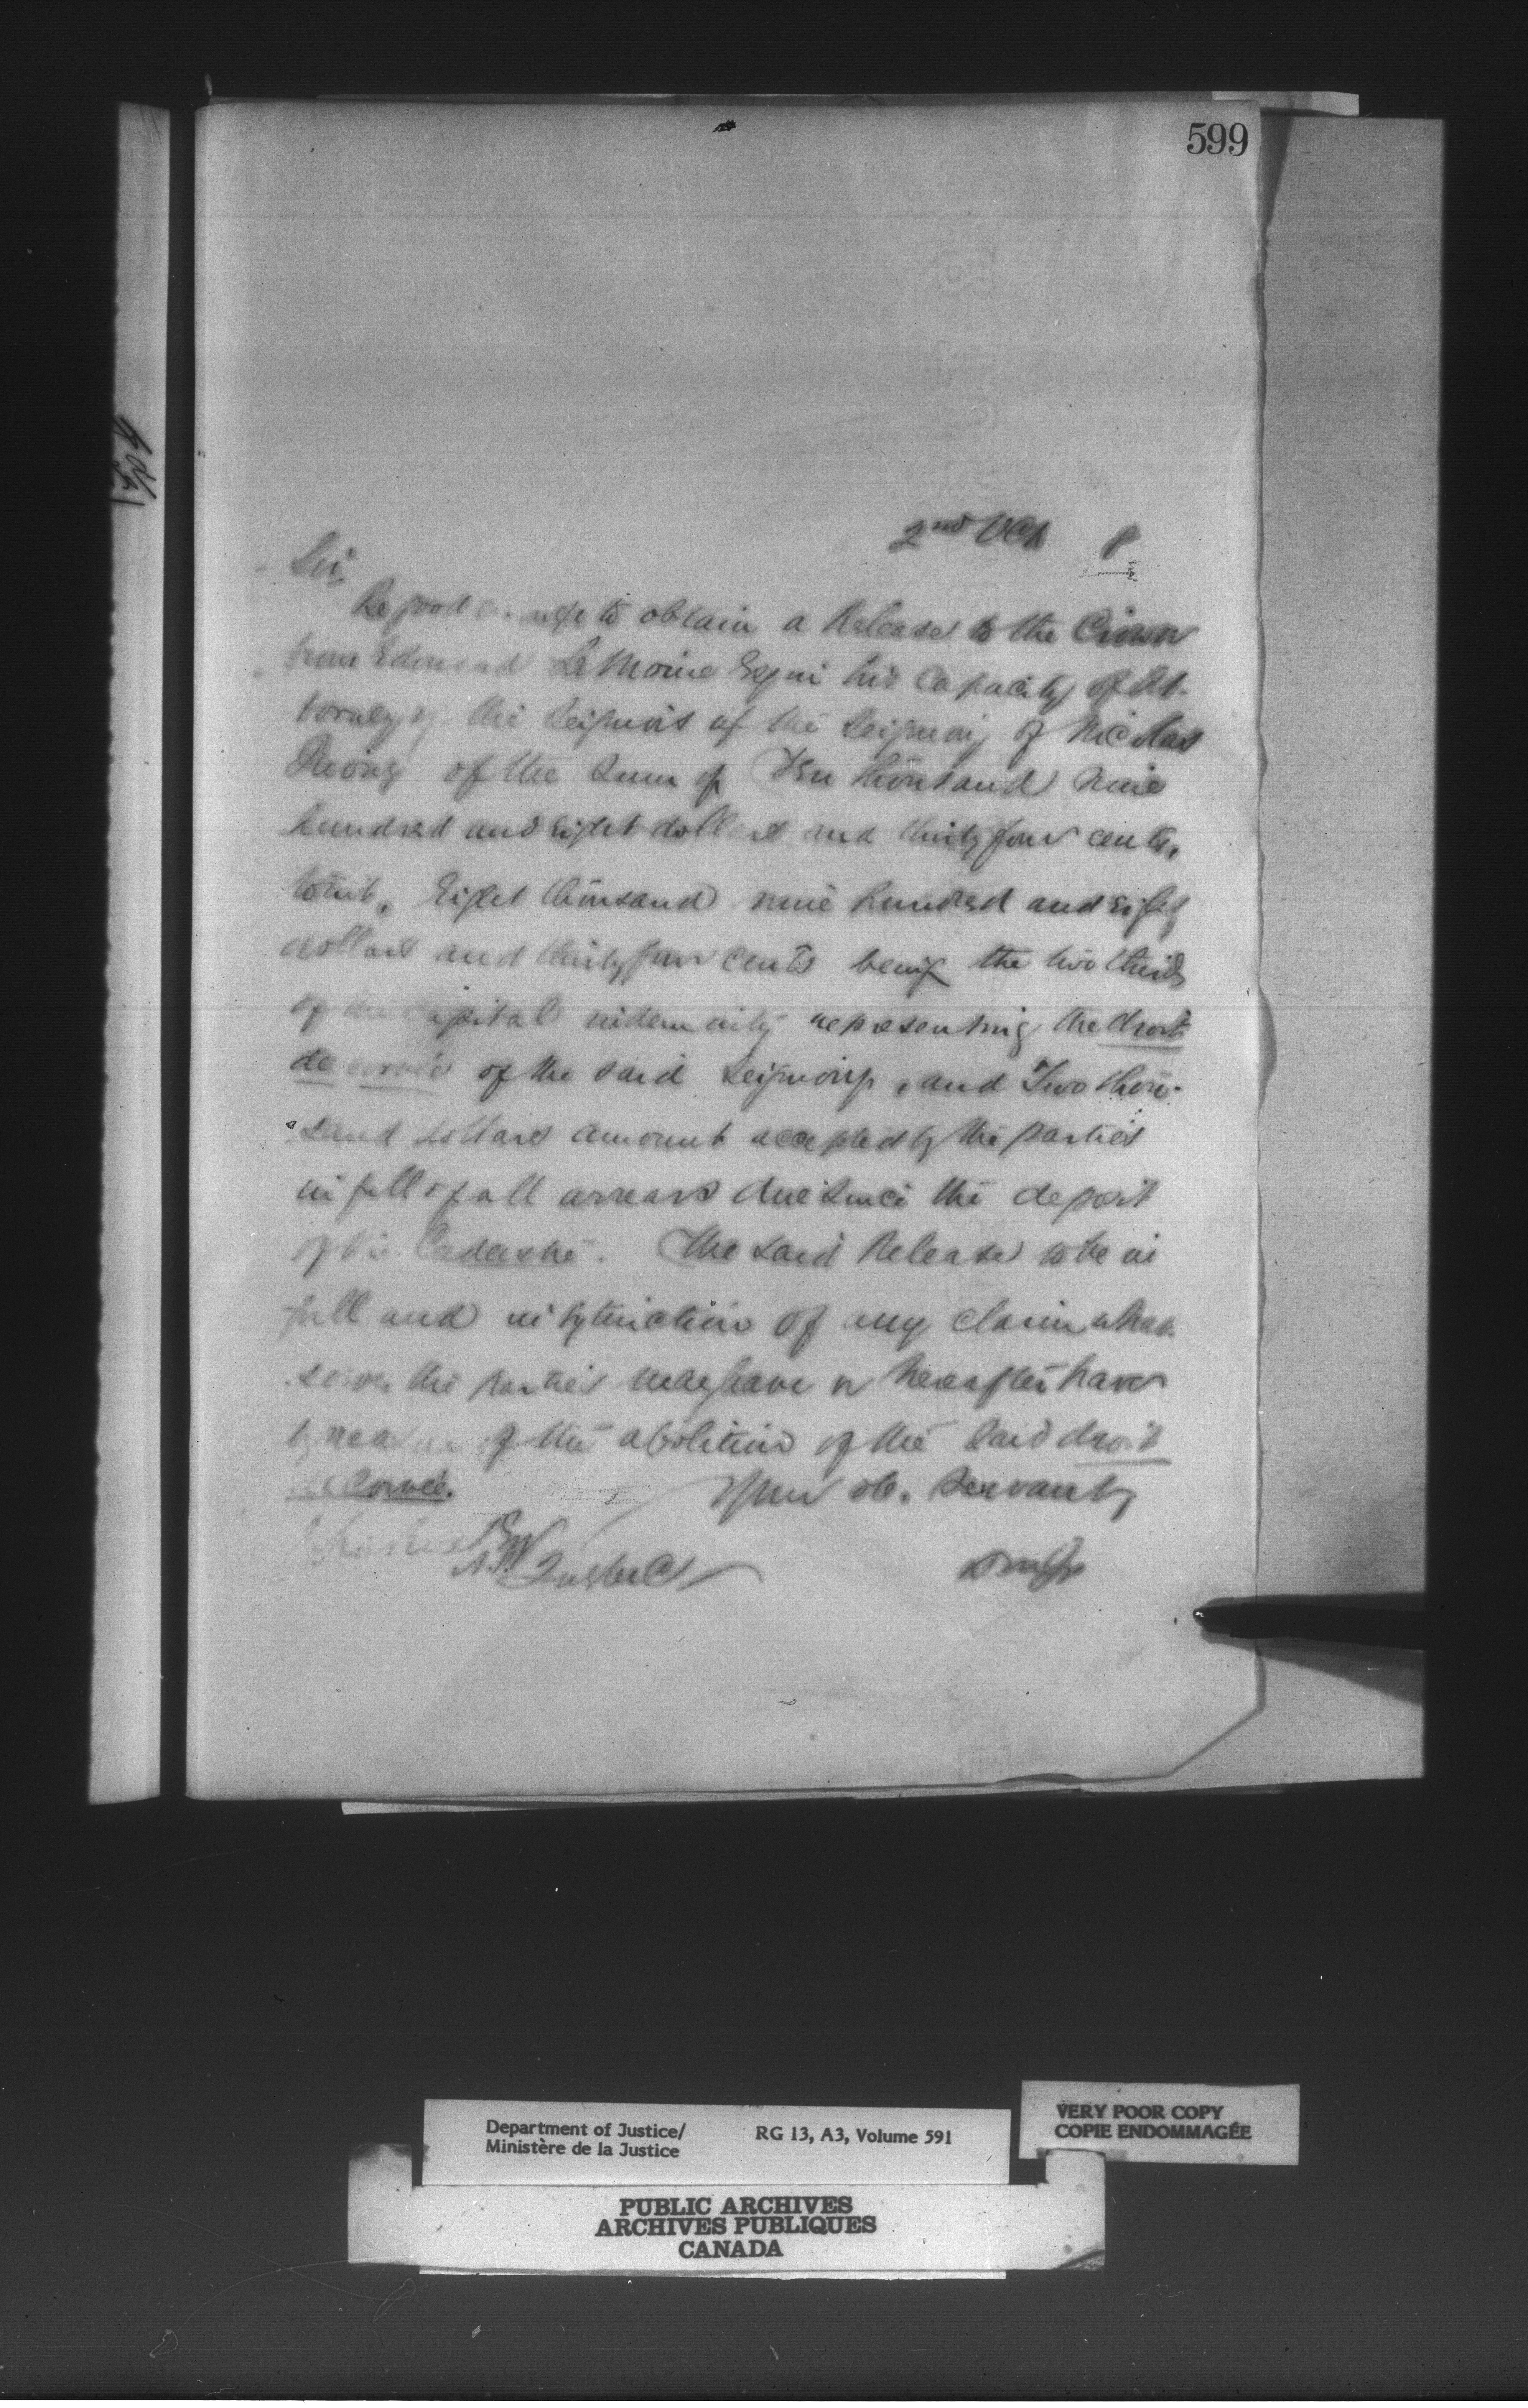 599
2nd Oct 8
Sir
Be good enough to obtain a Release to the Crown
from Edouard LeMoine Esq in his Capacity of At-
torney of the Seigniors of the Seigniory of Nicolas
Rioux of the Sum of Ten thousand nine
hundred and Eight dollars and thirty four cents,
towit, Eight thousand nine hundred and Eight
dollars and thirty four cents being the two thirds
of the Capital indemnity representing the droit
de corvée of the said Seigniory, and Two thou-
sand dollars amount accepted by the parties
in full of all arrears due since the deposit
of the Cadastre. The said Release to be in
full and in extinction of any claim what
soever the parties may have or hereafter have
by reason of the abolition of the said droit
de Corvée.
Your ob. Servant,
Quebec
Department of Justice/
Ministère de la Justice
RG 13, A3, Volume 591
VERY POOR COPY
COPIE ENDOMMAGÉE
PUBLIC ARCHIVES
ARCHIVES PUBLIQUES
CANADA